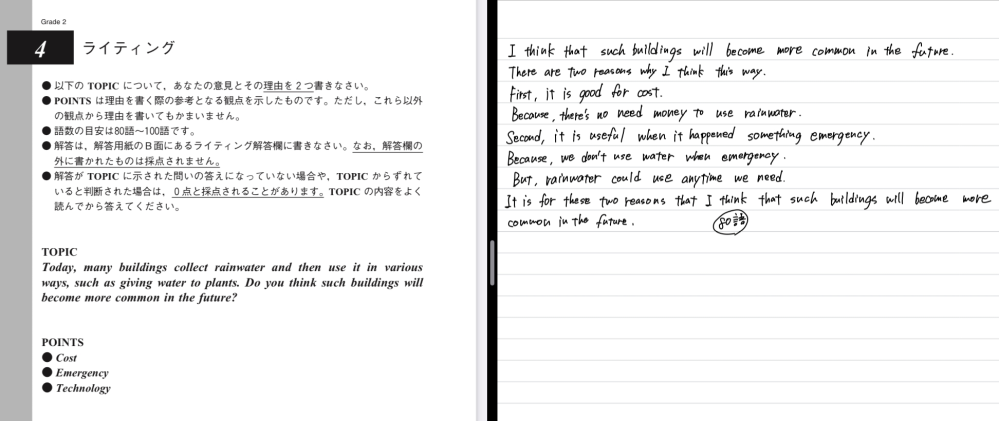 Grade 2
4 ライティング
● 以下の TOPIC について，あなたの意見とその理由を２つ書きなさい。
● POINTS は理由を書く際の参考となる観点を示したものです。ただし，これら以外
の観点から理由を書いてもかまいません。
● 語数の目安は80語～100語です。
● 解答は，解答用紙のＢ面にあるライティング解答欄に書きなさい。なお，解答欄の
外に書かれたものは採点されません。
● 解答が TOPIC に示された問いの答えになっていない場合や，TOPIC からずれて
いると判断された場合は，０点と採点されることがあります。TOPIC の内容をよく
読んでから答えてください。
TOPIC
Today, many buildings collect rainwater and then use it in various
ways, such as giving water to plants. Do you think such buildings will
become more common in the future?
POINTS
● Cost
● Emergency
● Technology
I think that such buildings will become more common in the future.
There are two reasons why I think this way.
First, it is good for cost.
Because, there's no need money to use rainwater.
Second, it is useful when it happened something emergency.
Because, we don't use water when emergency.
But, rainwater could use anytime we need.
It is for these two reasons that I think that such buildings will become more
common in the future.
80語